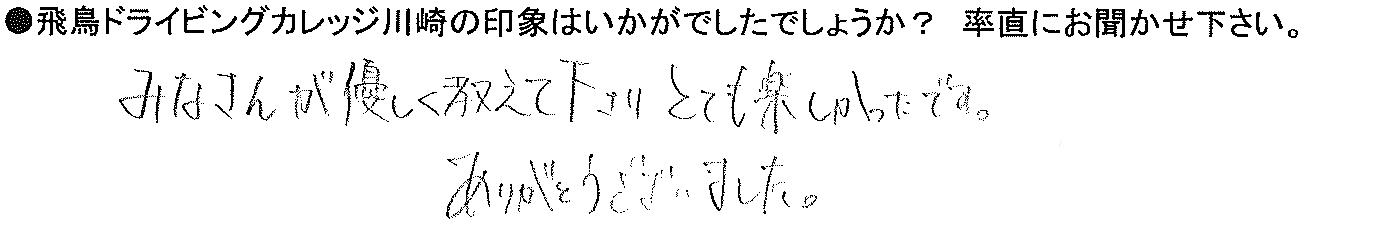 ●飛鳥ドライビングカレッジ川崎の印象はいかがでしたでしょうか？　率直にお聞かせ下さい。
みなさんが優しく教えて下さりとても楽しかったです。
ありがとうございました。